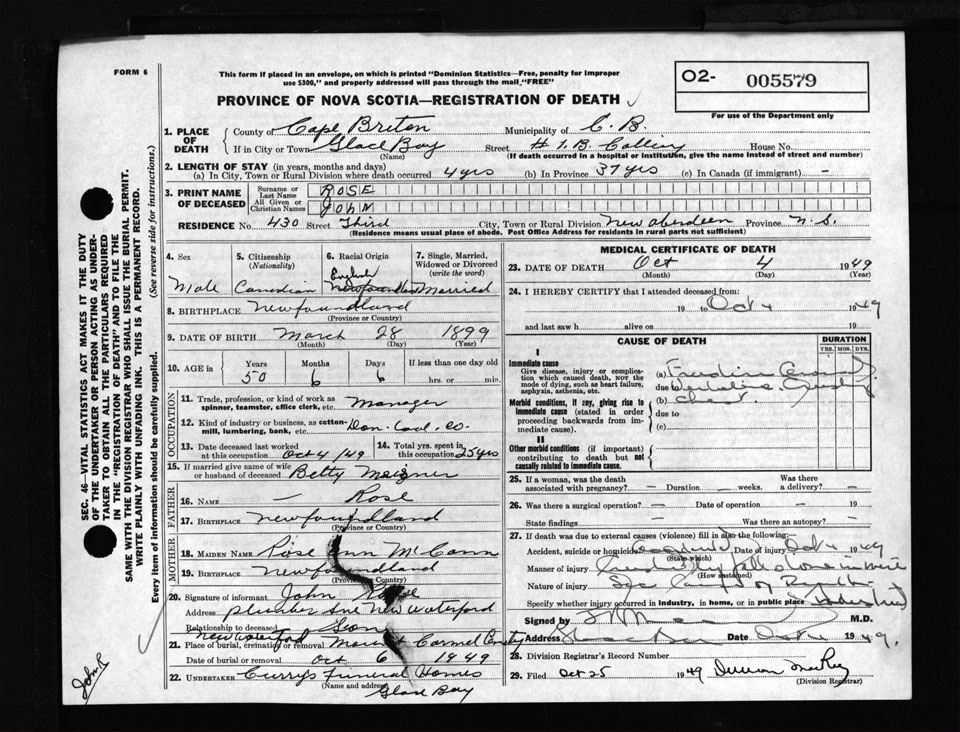 FORM 6
This form if placed in an envelope, on which is printed "Dominion Statistics—Free, penalty for improper
use $300," and properly addressed will pass through the mail "FREE"
O2- 005579
For use of the Department only
PROVINCE OF NOVA SCOTIA—REGISTRATION OF DEATH
1. PLACE OF DEATH County of Cape Breton Municipality of C. B.
If in City or Town Glace Bay (Name) Street # 1.B. Colliery House No.
(If death occurred in a hospital or institution, give the name instead of street and number)
2. LENGTH OF STAY (in years, months and days)
(a) In City, Town or Rural Division where death occurred 4 yrs (b) In Province 37 yrs (c) In Canada (if immigrant) —
3. PRINT NAME OF DECEASED Surname or Last Name ROSE
All Given or Christian Names JOHN
RESIDENCE No. 430 Street Third City, Town or Rural Division New Aberdeen Province N. S.
(Residence means usual place of abode. Post Office Address for residents in rural parts not sufficient)
4. Sex 5. Citizenship (Nationality) 6. Racial Origin 7. Single, Married, Widowed or Divorced (write the word)
Male Canadian English Married
8. BIRTHPLACE Newfoundland
(Province or Country)
9. DATE OF BIRTH March 28 1899
(Month) (Day) (Year)
10. AGE in Years Months Days If less than one day old
50 6 6 hrs. or min.
OCCUPATION
11. Trade, profession, or kind of work as spinner, teamster, office clerk, etc. Manager
12. Kind of industry or business, as cotton-mill, lumbering, bank, etc. Dom. Coal. Co.
13. Date deceased last worked at this occupation Oct 4/49 14. Total yrs. spent in this occupation 25 yrs
15. If married give name of wife or husband of deceased Betty
FATHER
16. NAME — Rose
17. BIRTHPLACE Newfoundland
(Province or Country)
MOTHER
18. MAIDEN NAME Rose Ann McCann
19. BIRTHPLACE Newfoundland
(Province or Country)
20. Signature of informant John Rose
Address Plumber Ave New Waterford
Relationship to deceased Son
New Waterford
21. Place of burial, cremation or removal Mount Carmel Cemetery
Date of burial or removal Oct 6 1949
22. UNDERTAKER Curry's Funeral Homes
(Name and address) Glace Bay
MEDICAL CERTIFICATE OF DEATH
23. DATE OF DEATH Oct 4 1949
(Month) (Day) (Year)
24. I HEREBY CERTIFY that I attended deceased from:
19 to Oct 4 1949
and last saw h alive on 19
CAUSE OF DEATH DURATION
YRS. MOS. DYS.
I
Immediate cause
Give disease, injury or complication which caused death, NOT the mode of dying, such as heart failure, asphyxia, asthenia, etc.
(a)
due to
Morbid conditions, if any, giving rise to immediate cause (stated in order proceeding backwards from immediate cause).
(b) chest
due to
(c)
II
Other morbid conditions (if important) contributing to death but not causally related to immediate cause.
25. If a woman, was the death associated with pregnancy? — Duration — weeks. Was there a delivery? —
26. Was there a surgical operation? — Date of operation — 19
State findings — Was there an autopsy? —
27. If death was due to external causes (violence) fill in also the following:
Accident, suicide or homicide? Accident Date of injury Oct 4 1949
(State which)
Manner of injury
(How sustained)
Nature of injury
Specify whether injury occurred in industry, in home, or in public place Industry
Signed by M.D.
Address Glace Bay Date Oct 4 1949.
28. Division Registrar's Record Number
29. Filed Oct 25 1949
(Division Registrar)
SEC. 46—VITAL STATISTICS ACT MAKES IT THE DUTY
OF THE UNDERTAKER OR PERSON ACTING AS UNDER-
TAKER TO OBTAIN ALL THE PARTICULARS REQUIRED
IN THE "REGISTRATION OF DEATH" AND TO FILE THE
SAME WITH THE DIVISION REGISTRAR WHO SHALL ISSUE THE BURIAL PERMIT.
WRITE PLAINLY WITH UNFADING INK. THIS IS A PERMANENT RECORD.
Every item of information should be carefully supplied. (See reverse side for instructions.)
John R